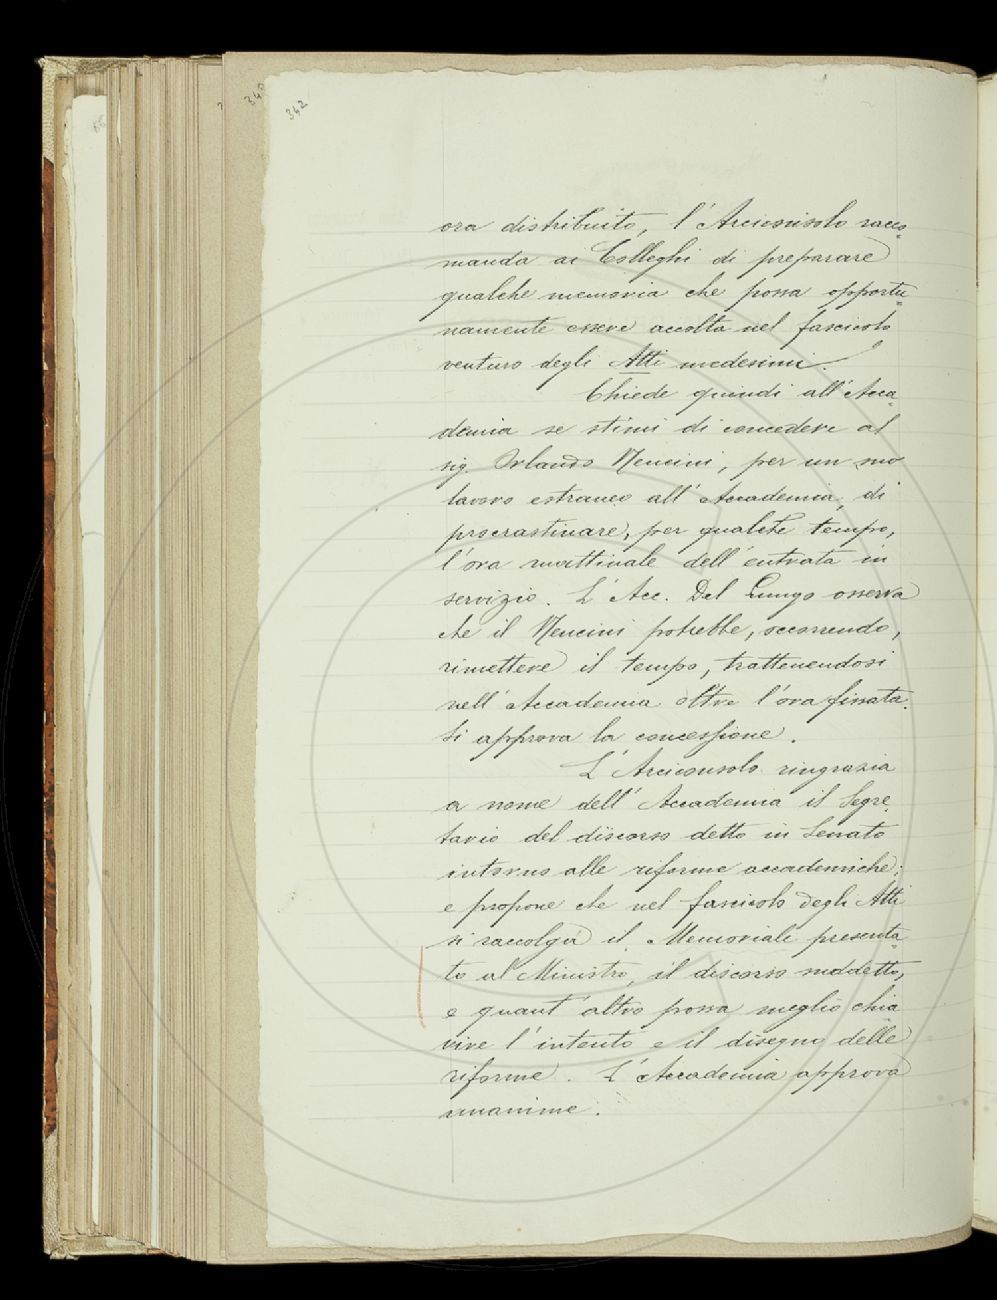 342
ora distribuito, l'Arciconsolo racco=
manda ai Colleghi di preparare
qualche memoria che possa opportu=
namente essere accolta nel fascicolo
venturo degli Atti medesimi.
Chiede quindi all'Acca=
demia se stimi di concedere al
sig. Orlando Mencini, per un suo
lavoro estraneo all'Accademia, di
procrastinare, per qualche tempo,
l'ora mattinale dell'entrata in
servizio. L'Acc. Del Lungo osserva
che il Mencini potrebbe, occorrendo,
rimettere il tempo, trattenendosi
nell'Accademia oltre l'ora fissata.
Si approva la concessione.
L'Arciconsolo ringrazia
a nome dell'Accademia il Segre=
tario del discorso detto in Senato
intorno alle riforme accademiche;
e propone che nel fascicolo degli Atti
si raccolga il Memoriale presenta=
to al Ministro, il discorso suddetto,
e quant'altro possa meglio chia
rire l'intento e il disegno delle
riforme. L'Accademia approva
unanime.